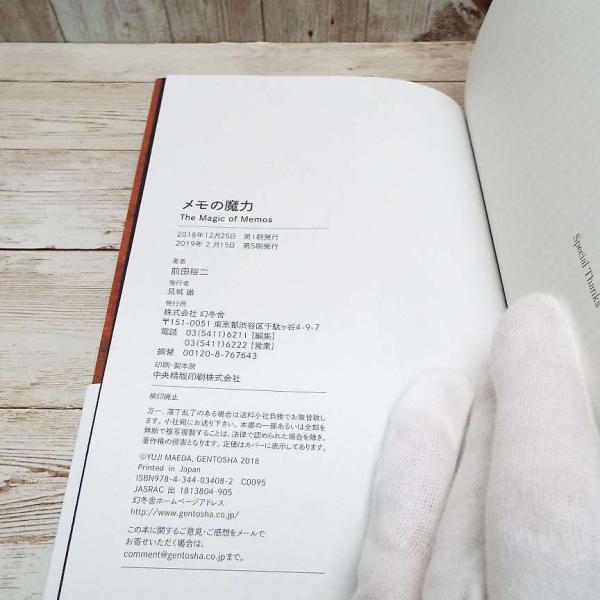 メモの魔力
The Magic of Memos
2018年12月25日 第1刷発行
2019年 2月15日 第5刷発行
著者
前田裕二
発行者
見城 徹
発行所
株式会社 幻冬舎
〒151-0051 東京都渋谷区千駄ヶ谷4-9-7
電話 03(5411)6211 [編集]
03(5411)6222 [営業]
振替 00120-8-767643
印刷・製本所
中央精版印刷株式会社
検印廃止
万一、落丁乱丁のある場合は送料小社負担でお取替致しま
す。小社宛にお送り下さい。本書の一部あるいは全部を
無断で複写複製することは、法律で認められた場合を除き、
著作権の侵害となります。定価はカバーに表示してあります。
©YUJI MAEDA, GENTOSHA 2018
Printed in Japan
ISBN978-4-344-03408-2 C0095
JASRAC 出 1813804-905
幻冬舎ホームページアドレス
http://www.gentosha.co.jp/
この本に関するご意見・ご感想をメールで
お寄せいただく場合は、
comment@gentosha.co.jpまで。
Special Thanks